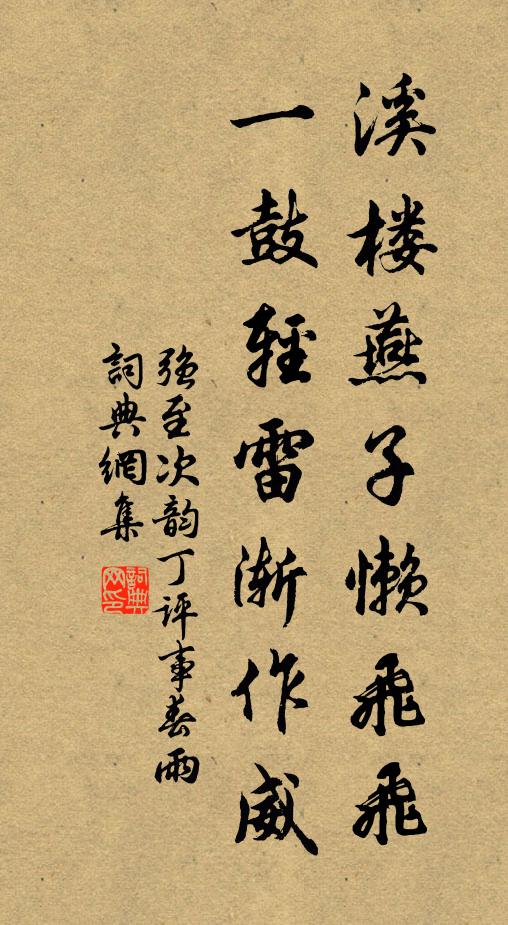 溪楼燕子懒飛飛
一鼓輕雷渐作威
强至次韵丁评事春雨
詞典網集
詞典网印